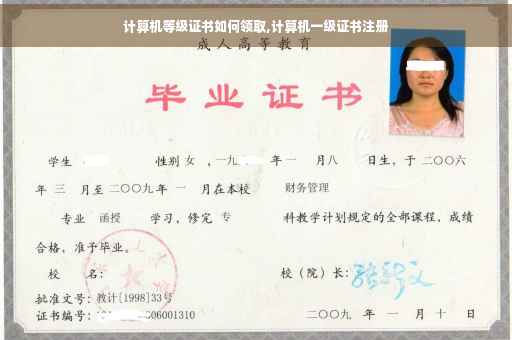 计算机等级证书如何领取,计算机一级证书注册
成人高等教育
毕业证书
学生 性别 女 ,一九 年 一 月 八 日生，于 二〇〇六
年 三 月至 二〇〇九 年 一 月在本校 财务管理
专业 函授 学习，修完 专 科教学计划规定的全部课程，成绩
合格，准予毕业。
校 名： 校（院）长：
批准文号：教计[1998]33号
证书编号： 06001310 二〇〇九 年 一 月 十 日